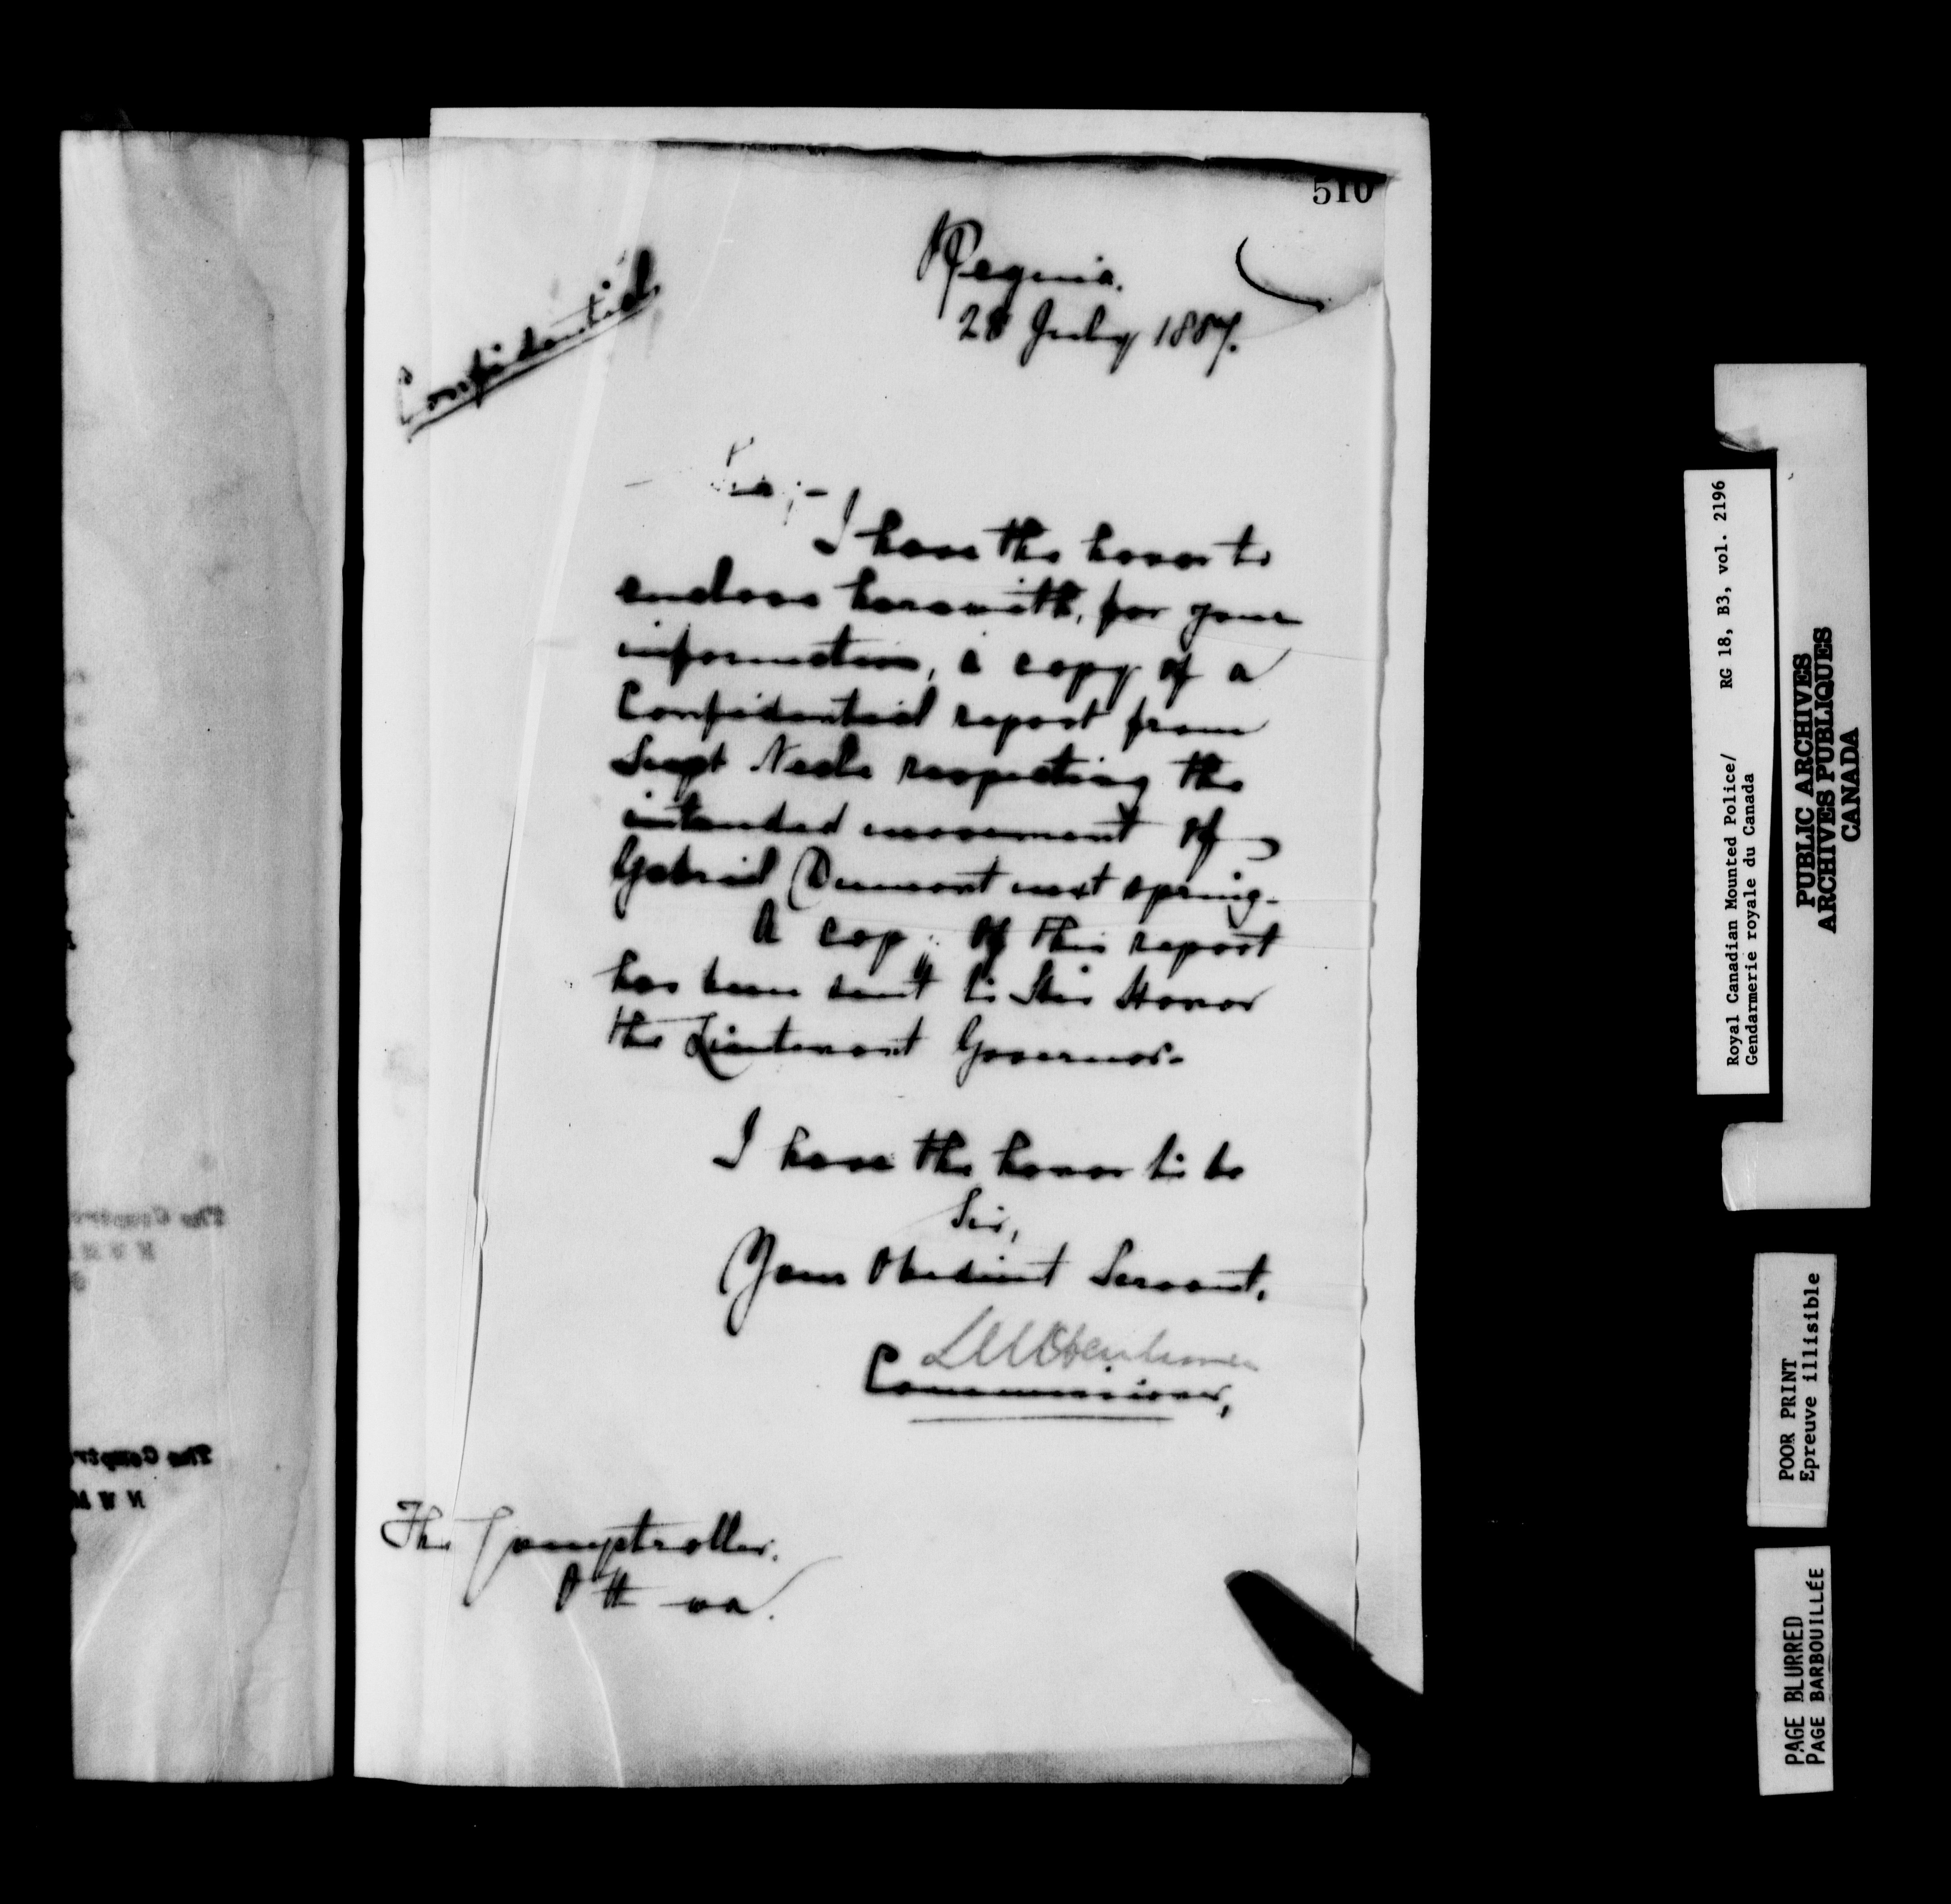 510
Confidential
Regina.
28 July 1887.
Sir;-
I have the honor to
enclose herewith, for your
information, a copy of a
Confidential report from
Supt Neale respecting the
intended movement of
Gabriel Dumont next spring.
A copy of this report
has been sent to His Honor
the Lieutenant Governor.
I have the honor to be
Sir,
Your Obedient Servant,
Commissioner,
The Comptroller.
Ottawa.
The Comptr
N W M
The Comptr
N W M
Royal Canadian Mounted Police/ RG 18, B3, vol. 2196
Gendarmerie royale du Canada
PUBLIC ARCHIVES
ARCHIVES PUBLIQUES
CANADA
POOR PRINT
Epreuve illisible
PAGE BLURRED
PAGE BARBOUILLÉE